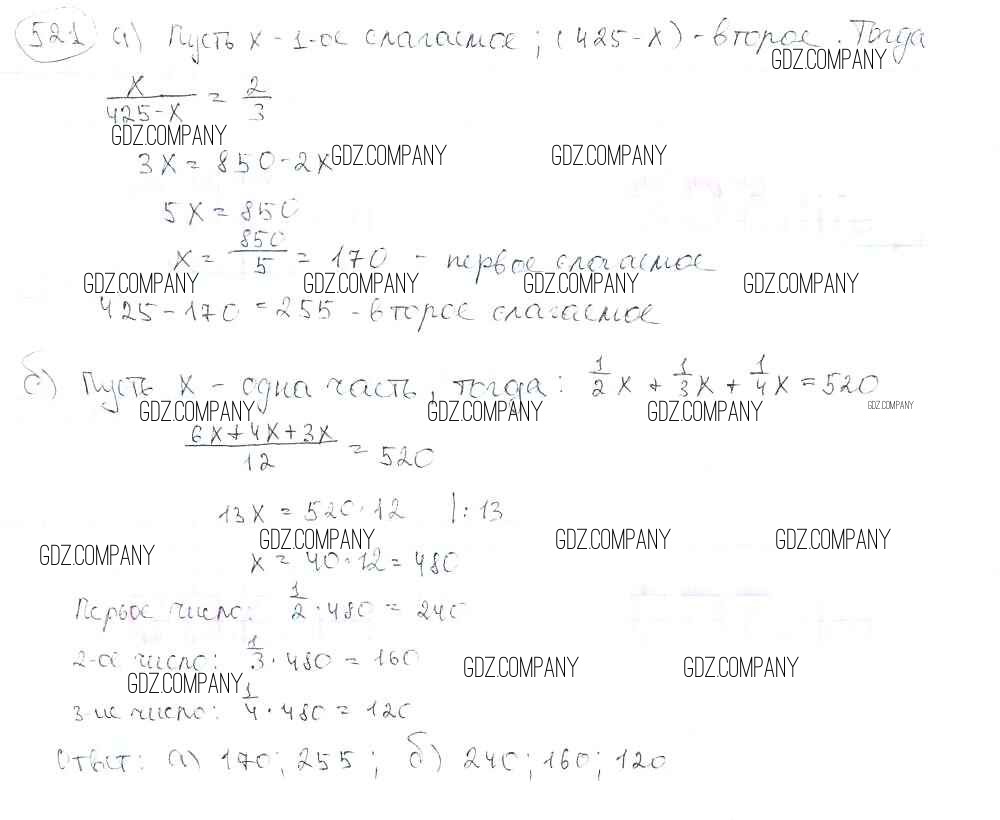 521 а) Пусть x - 1-ое слагаемое; (425-x) - второе. Тогда
GDZ.COMPANY
x/(425-x) = 2/3
GDZ.COMPANY
3x = 850 - 2x GDZ.COMPANY GDZ.COMPANY
5x = 850
x = 850/5 = 170 - первое слагаемое
GDZ.COMPANY GDZ.COMPANY GDZ.COMPANY GDZ.COMPANY
425 - 170 = 255 - второе слагаемое
б) Пусть x - одна часть, тогда: 1/2 x + 1/3 x + 1/4 x = 520
GDZ.COMPANY GDZ.COMPANY GDZ.COMPANY GDZ.COMPANY
(6x+4x+3x)/12 = 520
13x = 520·12 |:13
GDZ.COMPANY GDZ.COMPANY GDZ.COMPANY GDZ.COMPANY
x = 40·12 = 480
Первое число: 1/2 · 480 = 240
2-ое число: 1/3 · 480 = 160 GDZ.COMPANY GDZ.COMPANY
GDZ.COMPANY
3-ие число: 1/4 · 480 = 120
Ответ: а) 170; 255; б) 240; 160; 120